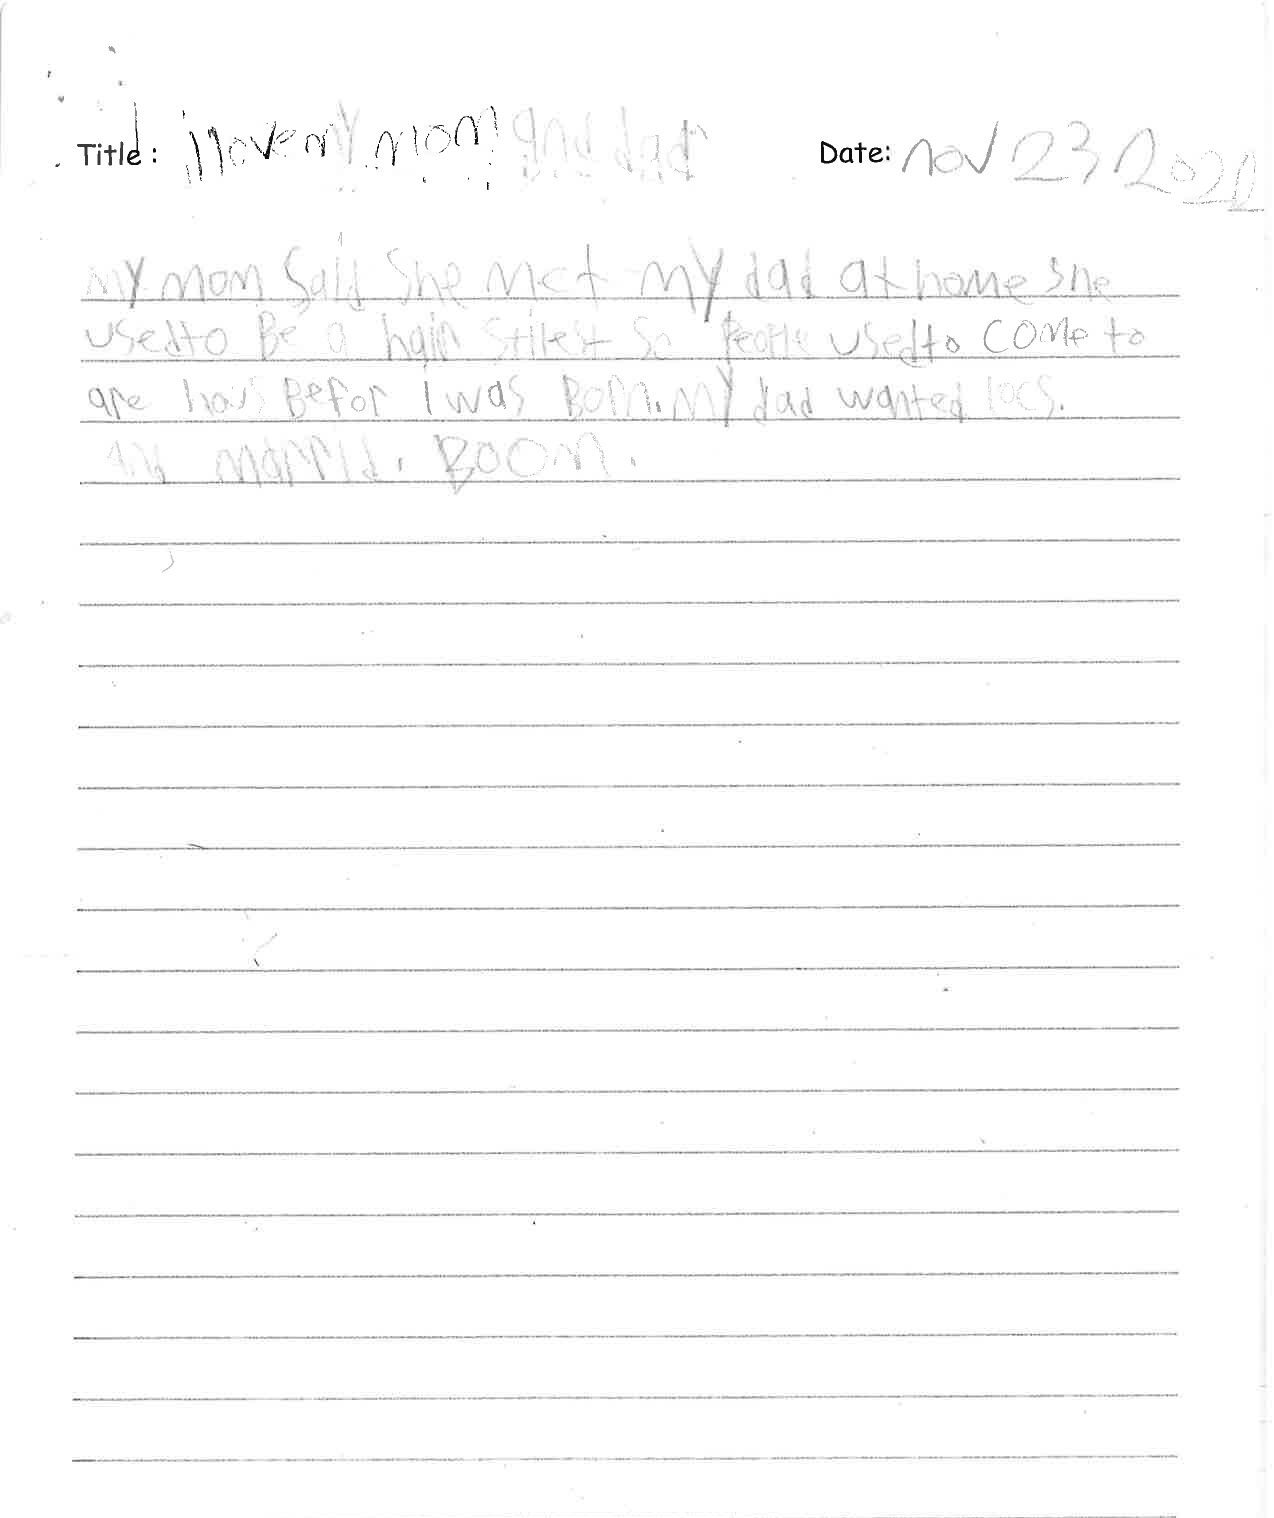 Title: i love my mom and dad Date: nov 23 2021
my mom Said She met my dad at home She
usedto Be a hair stilest So People usedto come to
are hous Befor I was Born. my dad wanted locs.
marrid. BOOM.